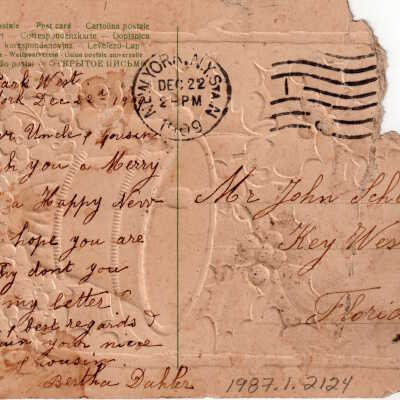 postale - Post card - Cartolina postale
Correspondenzkarte - Dopisnica
korespondencyjna - Levelező-Lap
Weltpostverein - Union postale universelle
postal - ОТКРЫТОЕ ПИСЬМО
NEW YORK, N.Y. STA. N
DEC 22
2-PM
1909
Park West
York Dec 22d 19
Uncle & Cousin
you a Merry
a Happy New
hope you are
dont you
my better
Best regards
your niece
& cousin
Bertha Dahler
Mr John
Key Wes
Florid
1987.1.2124